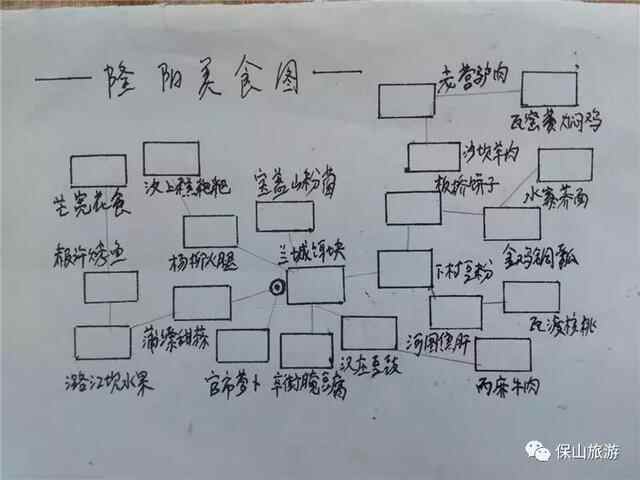 隆阳美食图
老营驴肉
瓦窑黄焖鸡
沙坝羊肉
芒宽花食
汶上糕粑粑
宝盖山粉菌
板桥饼子
水寨荞面
都许烤鱼
杨柳火腿
兰城饵块
下村豆粉
金鸡铜瓢
瓦渡核桃
蒲缥甜蒜
河图焦肝
潞江坝水果
官市萝卜
辛街腌豆腐
汉庄豆豉
丙麻牛肉
保山旅游